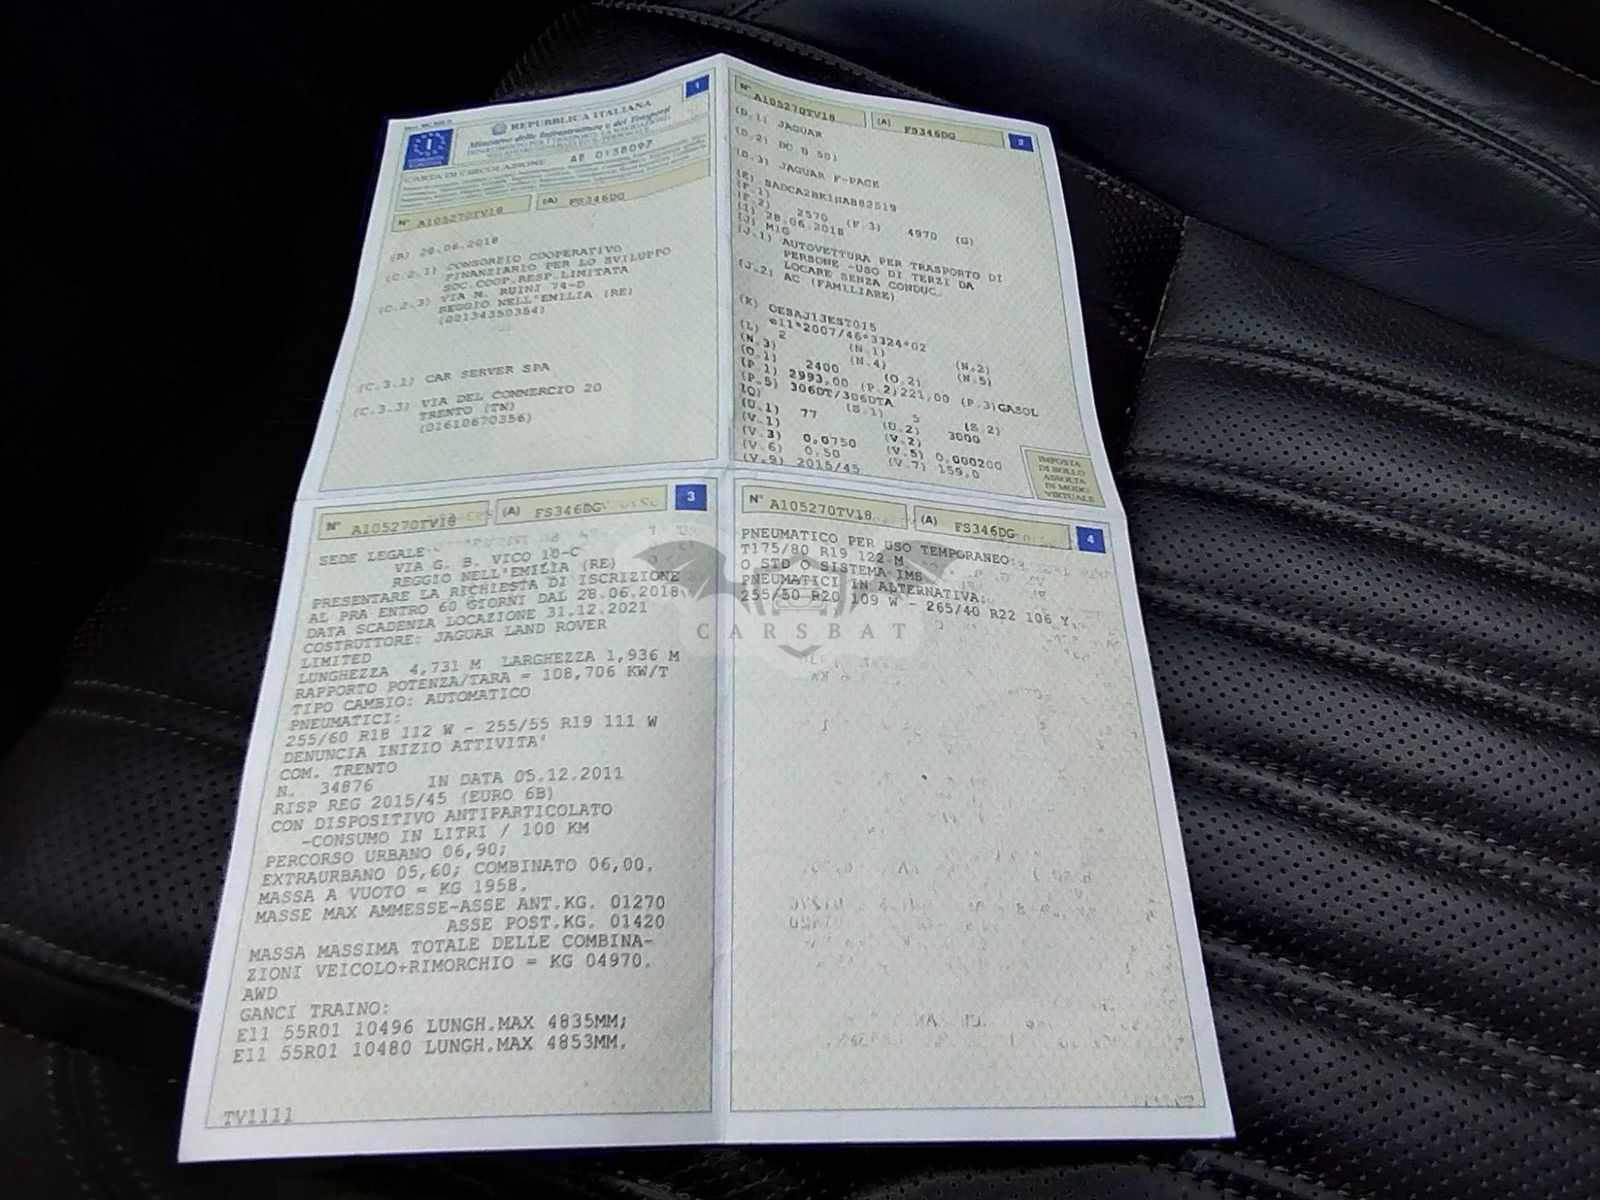 1
REPUBBLICA ITALIANA
Ministero delle Infrastrutture e dei Trasporti
CARTA DI CIRCOLAZIONE AE 0158097
N° A105270TV18 (A) FS346DG
(B) 28.06.2018
(C.2.1) CONSORZIO COOPERATIVO
FINANZIARIO PER LO SVILUPPO
SOC.COOP.RESP.LIMITATA
(C.2.3) VIA M. RUINI 74-D
REGGIO NELL'EMILIA (RE)
(00134350354)
(C.3.1) CAR SERVER SPA
(C.3.3) VIA DEL COMMERCIO 20
TRENTO (TN)
(01610670356)
N° A105270TV18 (A) FS346DG
2
(D.1) JAGUAR
(D.2) DC
(D.3) JAGUAR F-PACE
(E) SADCA2BK1HAB82519
(F.1)
(F.2) 2570 (F.3) 4970 (G)
(I) 28.06.2018
(J) M1G
(J.1) AUTOVETTURA PER TRASPORTO DI
PERSONE -USO DI TERZI DA
LOCARE SENZA CONDUC.
(J.2) AC (FAMILIARE)
(K) OESAJ13EST015
e11*2007/46*3324*02
(L) 2 (N.1) (N.2)
(N.3) (N.4) (N.5)
(O.1) 2400 (O.2)
(P.1) 2993,00 (P.2)221,00 (P.3)GASOL
(P.5) 306DT/306DTA
(Q) (S.1) 5 (S.2)
(U.1) 77 (U.2) 3000
(V.1) (V.2)
(V.3) 0,0750 (V.5) 0,000200
(V.6) 0,50 (V.7) 159,0
(V.9) 2015/45
IMPOSTA
DI BOLLO
ASSOLTA
IN MODO
VIRTUALE
N° A105270TV18 (A) FS346DG
3
SEDE LEGALE
VIA G. B. VICO 10-C
REGGIO NELL'EMILIA (RE)
PRESENTARE LA RICHIESTA DI ISCRIZIONE
AL PRA ENTRO 60 GIORNI DAL 28.06.2018
DATA SCADENZA LOCAZIONE 31.12.2021
COSTRUTTORE: JAGUAR LAND ROVER
LIMITED
LUNGHEZZA 4,731 M LARGHEZZA 1,936 M
RAPPORTO POTENZA/TARA = 108,706 KW/T
TIPO CAMBIO: AUTOMATICO
PNEUMATICI:
255/60 R18 112 W - 255/55 R19 111 W
DENUNCIA INIZIO ATTIVITA'
COM. TRENTO
N. 34876 IN DATA 05.12.2011
RISP REG 2015/45 (EURO 6B)
CON DISPOSITIVO ANTIPARTICOLATO
-CONSUMO IN LITRI / 100 KM
PERCORSO URBANO 06,90;
EXTRAURBANO 05,60; COMBINATO 06,00.
MASSA A VUOTO = KG 1958.
MASSE MAX AMMESSE-ASSE ANT.KG. 01270
ASSE POST.KG. 01420
MASSA MASSIMA TOTALE DELLE COMBINA-
ZIONI VEICOLO+RIMORCHIO = KG 04970.
AWD
GANCI TRAINO:
E11 55R01 10496 LUNGH.MAX 4835MM;
E11 55R01 10480 LUNGH.MAX 4853MM.
TV1111
N° A105270TV18 (A) FS346DG
4
PNEUMATICO PER USO TEMPORANEO:
T175/80 R19 122 M
O STD O SISTEMA IMS
PNEUMATICI IN ALTERNATIVA:
255/50 R20 109 W - 265/40 R22 106 Y.
CARSBAT